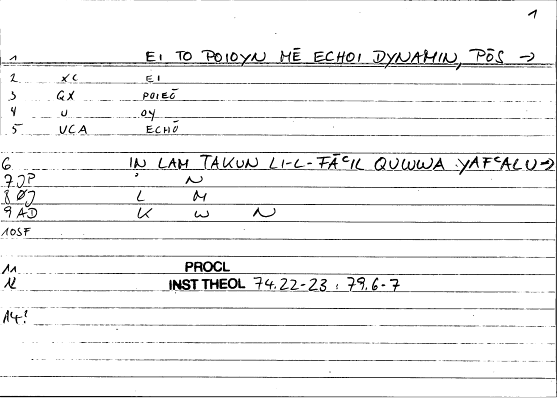 1
1 EI TO POIOYN MĒ ECHOI DYNAMIN, PŌS →
2 XC EI
3 GX POIEŌ
4 U OY
5 UCA ECHŌ
6 IN LAM TAKUN LI-L-FĀʿIL QUWWA YAFʿALU →
7 JP ʾ N
8 ØJ L M
9 AD K W N
10 SF
11 PROCL
12 INST THEOL 74.22-23 : 79.6-7
14: